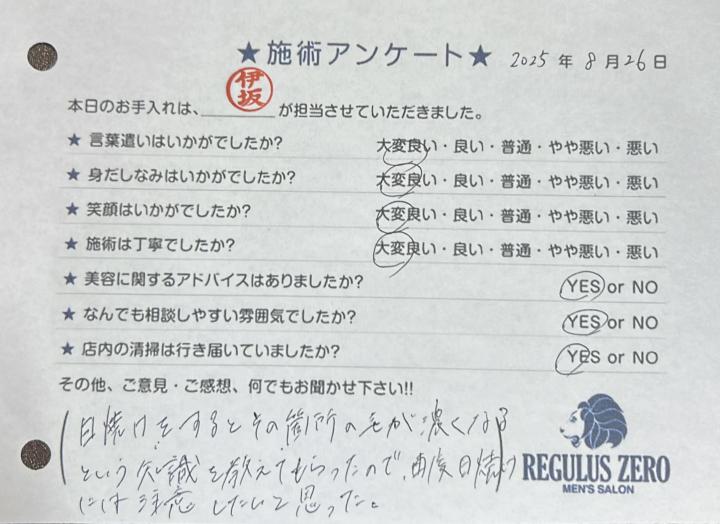 ★施術アンケート★ 2025年8月26日
本日のお手入れは、伊坂が担当させていただきました。
★ 言葉遣いはいかがでしたか? 大変良い・良い・普通・やや悪い・悪い
★ 身だしなみはいかがでしたか? 大変良い・良い・普通・やや悪い・悪い
★ 笑顔はいかがでしたか? 大変良い・良い・普通・やや悪い・悪い
★ 施術は丁寧でしたか? 大変良い・良い・普通・やや悪い・悪い
★ 美容に関するアドバイスはありましたか? YES or NO
★ なんでも相談しやすい雰囲気でしたか? YES or NO
★ 店内の清掃は行き届いていましたか? YES or NO
その他、ご意見・ご感想、何でもお聞かせ下さい!!
日焼けをするとその箇所の毛が濃くなる
という知識を教えてもらったので、日焼け
には注意したいと思った。
REGULUS ZERO
MEN'S SALON